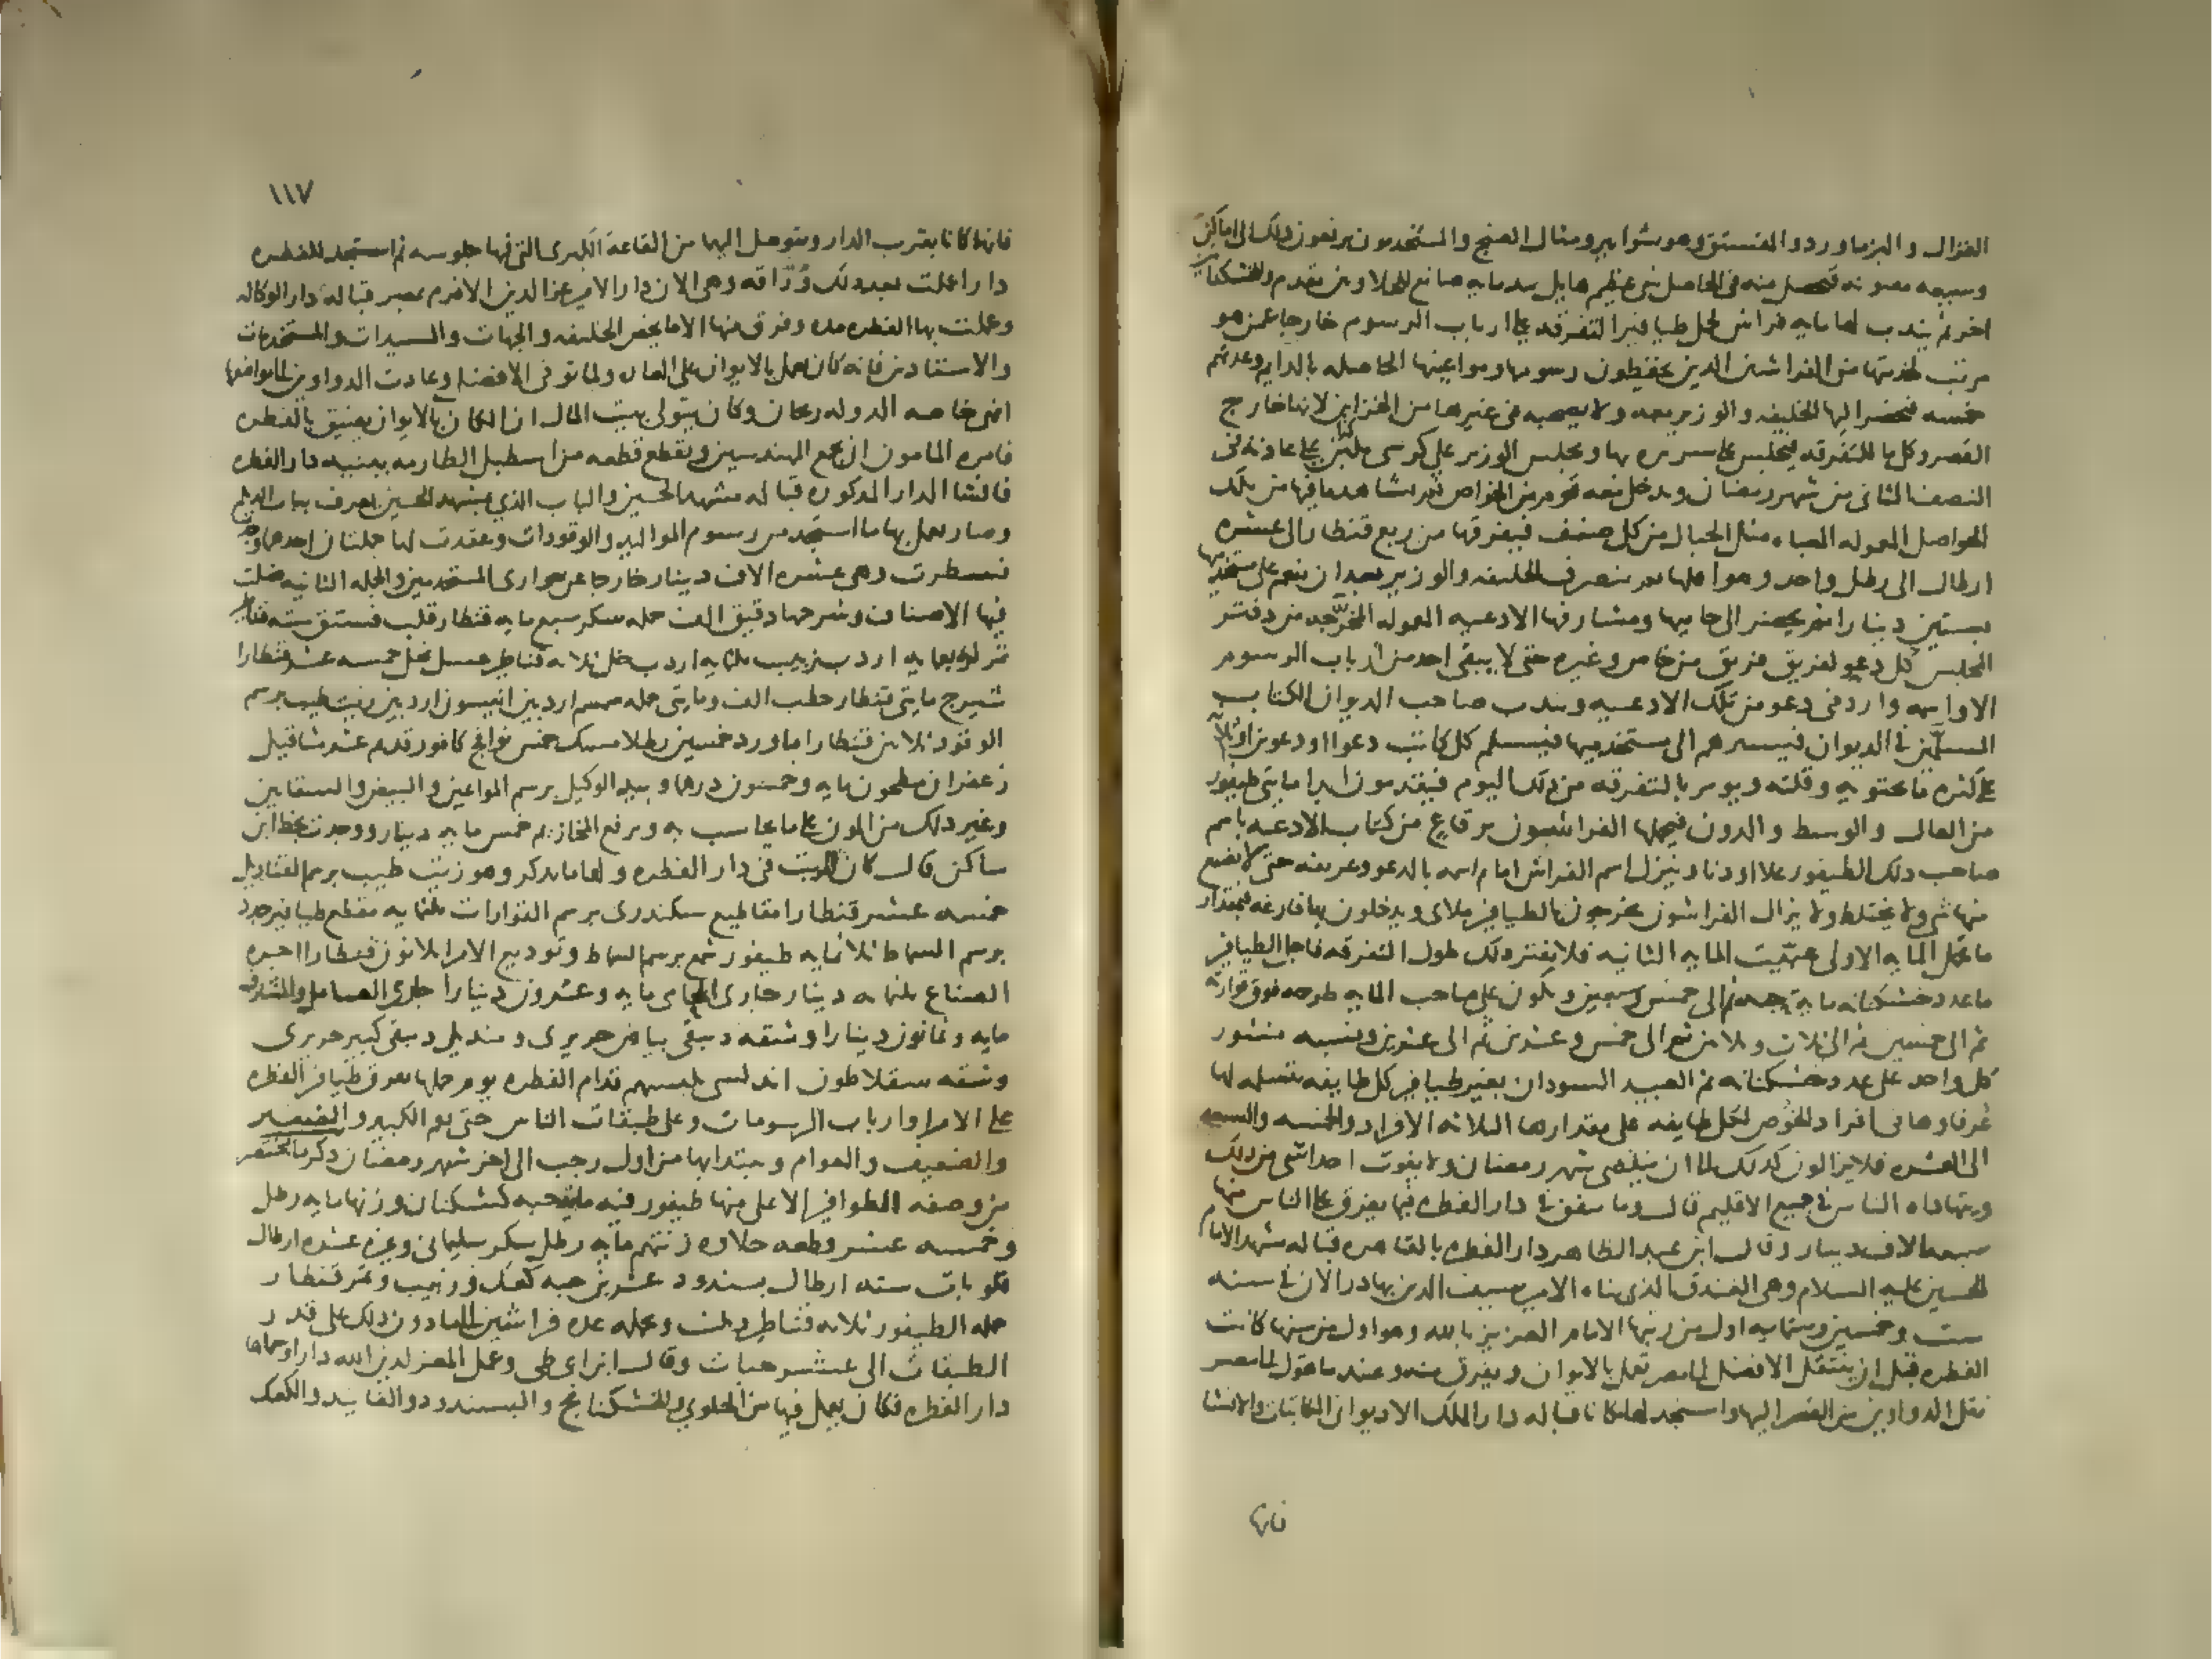 الغزال والبزماورد والفستق وهو شوابير ومثال الصنج والمستخدمون يرفعون ذلك الى اماكن
وسيعه مصونه فيحصل منه فى الحاصل شى عظيم هايل بيد مايه صانع للحلاويين مقدم وللخشكنانيين
اخر ثم يندب لها مايه فراش لحمل طيافير التفرقه على ارباب الرسوم خارجا عمن هو
مرتب لخدمتها من الفراشين الذين يحفظون رسومها ومواعينها الحاصله بالدايم وعدتهم
خمسه فيحضر اليها الخليفه والوزير معه ولا يصحبه فى غيرها من الخزاين لانها خارج
القصر وكلها للتفرقه فيجلس على سريره بها ويجلس الوزير على كرسى ملين على عادته فى
النصف الثانى من شهر رمضان ويدخل معه قوم من الخواص ثم يشاهد ما فيها من تلك
الحواصل المعموله المعباه مثل الجبال من كل صنف فيفرقها من ربع قنطار الى عشره
ارطال الى رطل واحد وهو اقلها ثم ينصرف الخليفه والوزير بعد ان ينعم على مستخدميها
بستين دينارا ثم يحضر الى حاميها ومشارفها الادعيه المعموله المخرجه من دفتر
المجلس كل دعو لفريق فريق من خاص وغيره حتى لا يبقى احد من ارباب الرسوم
الا واسمه وارد فى دعو من تلك الادعيه ويندب صاحب الديوان الكتاب
المسلمين فى الديوان فيسيرهم الى مستخدميها فيسلم كل كاتب دعوا او دعوين او ثلاثه
على كثره ما يحتويه وقلته ويومر بالتفرقه من ذلك اليوم فيقدمون ابدا مايتى طيفور
من العالى والوسط والدون فيحملها الفراشون برقاع من كتاب الادعيه باسم
صاحب ذلك الطيفور علا او دنا وينزل اسم الفراش امام اسمه بالدعو وعريفه حتى لا يضيع
منها شى ولا يختلط ولا يزال الفراشون يخرجون بالطيافير ملاى ويدخلون بها فارغه فبمقدار
ما تحمل المايه الاولى عبيت المايه الثانيه فلا يفتر ذلك طول التفرقه فاجل الطيافير
ما عدد خشكنانه مايه حبه ثم الى خمس وسبعين ويكون على صاحب المايه طرحه فوق قوارته
ثم الى خمسين ثم الى ثلاث وثلاثين ثم الى خمس وعشرين ثم الى عشرين ونسبه منثور
كل واحد على عدد خشكنانه ثم العبيد السودان بغير طيافير كل طايفه يتسلمه لها
عرفاوها فى افراد الخوص لكل طايفه على مقدارها الثلاثه الافراد والخمسه والسبعه
الى العشره فلا يزالون كذلك الى ان ينقضى شهر رمضان ولا يفوت احدا شى من ذلك
ويتهاداه الناس فى جميع الاقليم قال وما ينفق فى دار الفطره فيما يفرق على الناس منها
سبعه الاف دينار وقال ابن عبد الظاهر دار الفطره بالقاهره قباله مشهد الامام
الحسين عليه السلام وهى الفندق الذى بناه الامير سيف الدين بهادر الان فى سنه
ست وخمسين وستمايه اول من رتبها الامام العزيز بالله وهو اول من سنها كانت
الفطره قبل ان ينتقل الافضل الى مصر تعمل بالايوان ويفرق منه وعند ما تحول الى مصر
نقل الدواوين من القصر اليها واستجد لها مكانا قباله دار الملك الا ديوانى المكاتبات والانشا
فانها
١١٧
فانهما كانا بقرب الدار ويتوصل اليهما من القاعة الكبرى التى فيها جلوسه ثم استجد للفطره
دارا عملت بعد ذلك وراقه وهى الان دار الامير عز الدين الافرم بمصر قباله دار الوكاله
وعملت بها الفطره مده وفرق منها الا ما يخص الخليفه والجهات والسيدات والمستخدمات
والاستادين فانه كان يعمل بالايوان على العاده ولما توفى الافضل وعادت الدواوين الى مواضعها
انهى خاصه الدوله ريحان وكان يتولى بيت المال ان المكان بالايوان يضيق بالفطره
فامره المامون ان يجمع المهندسين ويقطع قطعه من اسطبل الطارمه يبنيه دار الفطره
فانشا الدار المذكوره قباله مشهد الحسين والباب الذى بمشهد الحسين يعرف بباب الديلم
وصار يعمل بها ما استجد من رسوم المواليد والوقودات وعقدت لها جملتان احدهما وجدت
فسطرت وهى عشره الاف دينار خارجا عن جوارى المستخدمين والجمله الثانيه فصلت
فيها الاصناف وشرحها دقيق الف حمله سكر سبع مايه قنطار قلب فستق سته قناطير
تمر اربعمايه اردب زبيب ثلثمايه اردب خل ثلاثه قناطير عسل نحل خمسه عشر قنطارا
شيرج مايتى قنطار حطب الف ومايتى حمله سمسم اردبين انيسون اردبين زيت طيب برسم
الوقود ثلاثين قنطارا ماورد خمسين رطلا مسك خمس نوافج كافور قديم عشر مثاقيل
زعفران مطحون مايه وخمسون درهما وبيد الوكيل برسم المواعين والبيض والسقايين
وغير ذلك من المون على ما يحاسب به ويرفع المخازيم خمس مايه دينار ووجدت بخط ابن
ساكن قال كان المرتب فى دار الفطره ولها ما يذكر وهو زيت طيب برسم القناديل
خمسه عشر قنطارا مقاطع سكندرى برسم القوارات ثلثمايه مقطع طيافير جدد
برسم السماط ثلاثمايه طيفور شمع برسم السماط وتوديع الامرا ثلاثون قنطارا اجره
الصناع ثلثمايه دينار جارى الحامى مايه وعشرون دينارا جارى العامل والمشارف
مايه وثمانون دينارا وشقه دبيقى بياض حريرى ومنديل دبيقى كبير حريرى
وشقه سقلاطون اندلسى يلبسهم قدام الفطره يوم حملها تفرق طيافير الفطره
على الامرا وارباب الرسومات وعلى طبقات الناس حتى يعم الكبير والصغير
والضعيف والعوام ومبتدابها من اول رجب الى اخر شهر رمضان ذكر ما يختص
من وصفه الطوافير الاعلى منها طيفور فيه مايه حبه كشكنان وزنها مايه رطل
وخمسه عشر قطعه حلاوه زنتهم مايه رطل سكر سليمانى وغيره عشره ارطال
قلوبات سته ارطال بسندود عشرين حبه كعك وزبيب وتمر قنطار
حمله الطيفور ثلاثه قناطير وثلث وحمله عده فراشين الى ما دون ذلك على قدر
الطبقات الى عشر حبات وقال ابن ابى طى وعمل المعز لدين الله دارا وسماها
دار الفطره فكان يعمل فيها من الحلوى والخشكنانج والبسندود والفانيد والكعك